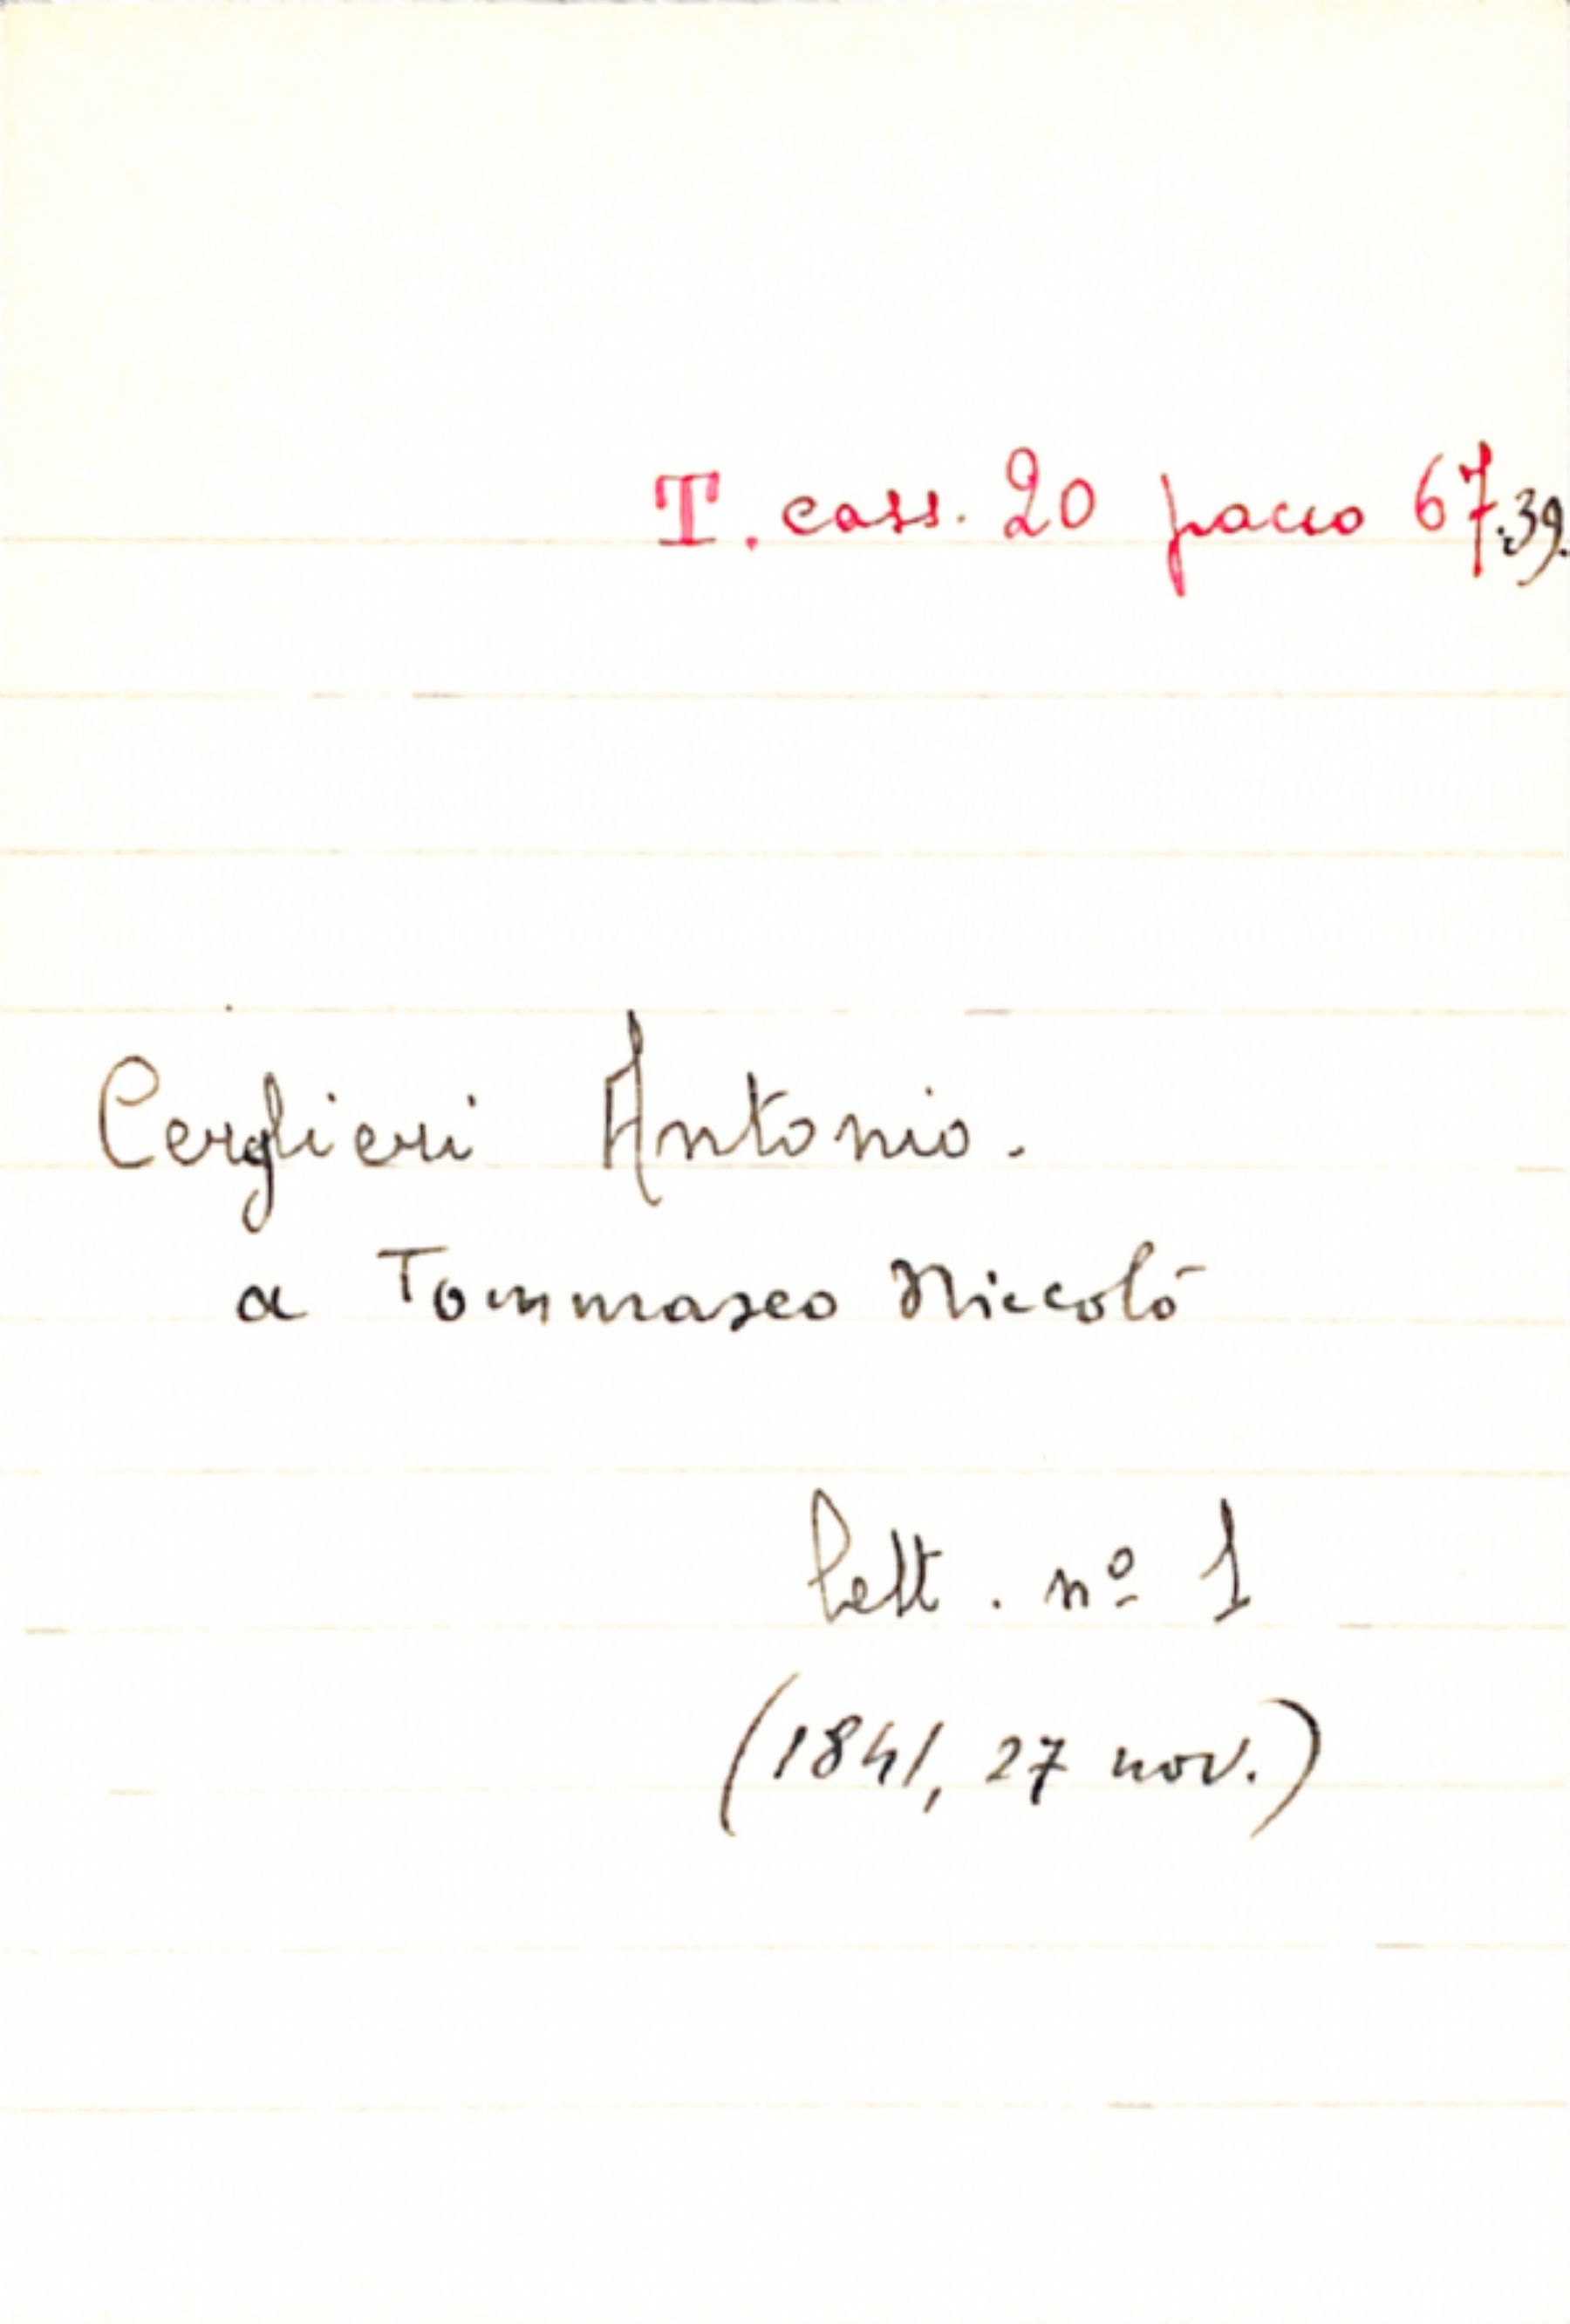 T. cass. 20 pacco 67.39.
Cerglieri Antonio.
a Tommaseo Niccolò
Lett. nº 1
(1841, 27 nov.)